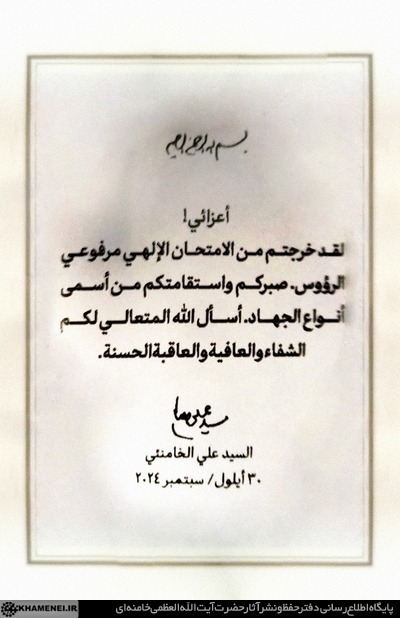 بسم الله الرحمن الرحیم
أعزائي!
لقد خرجتم من الامتحان الإلهي مرفوعي
الرؤوس. صبركم واستقامتكم من أسمى
أنواع الجهاد. أسأل الله المتعالي لكم
الشفاء والعافية والعاقبة الحسنة.
السيد علي الخامنئي
٣٠ أيلول/ سبتمبر ٢٠٢٤
KHAMENEI.IR
پایگاه اطلاع‌رسانی دفتر حفظ و نشر آثار حضرت آیت‌الله‌العظمی خامنه‌ای